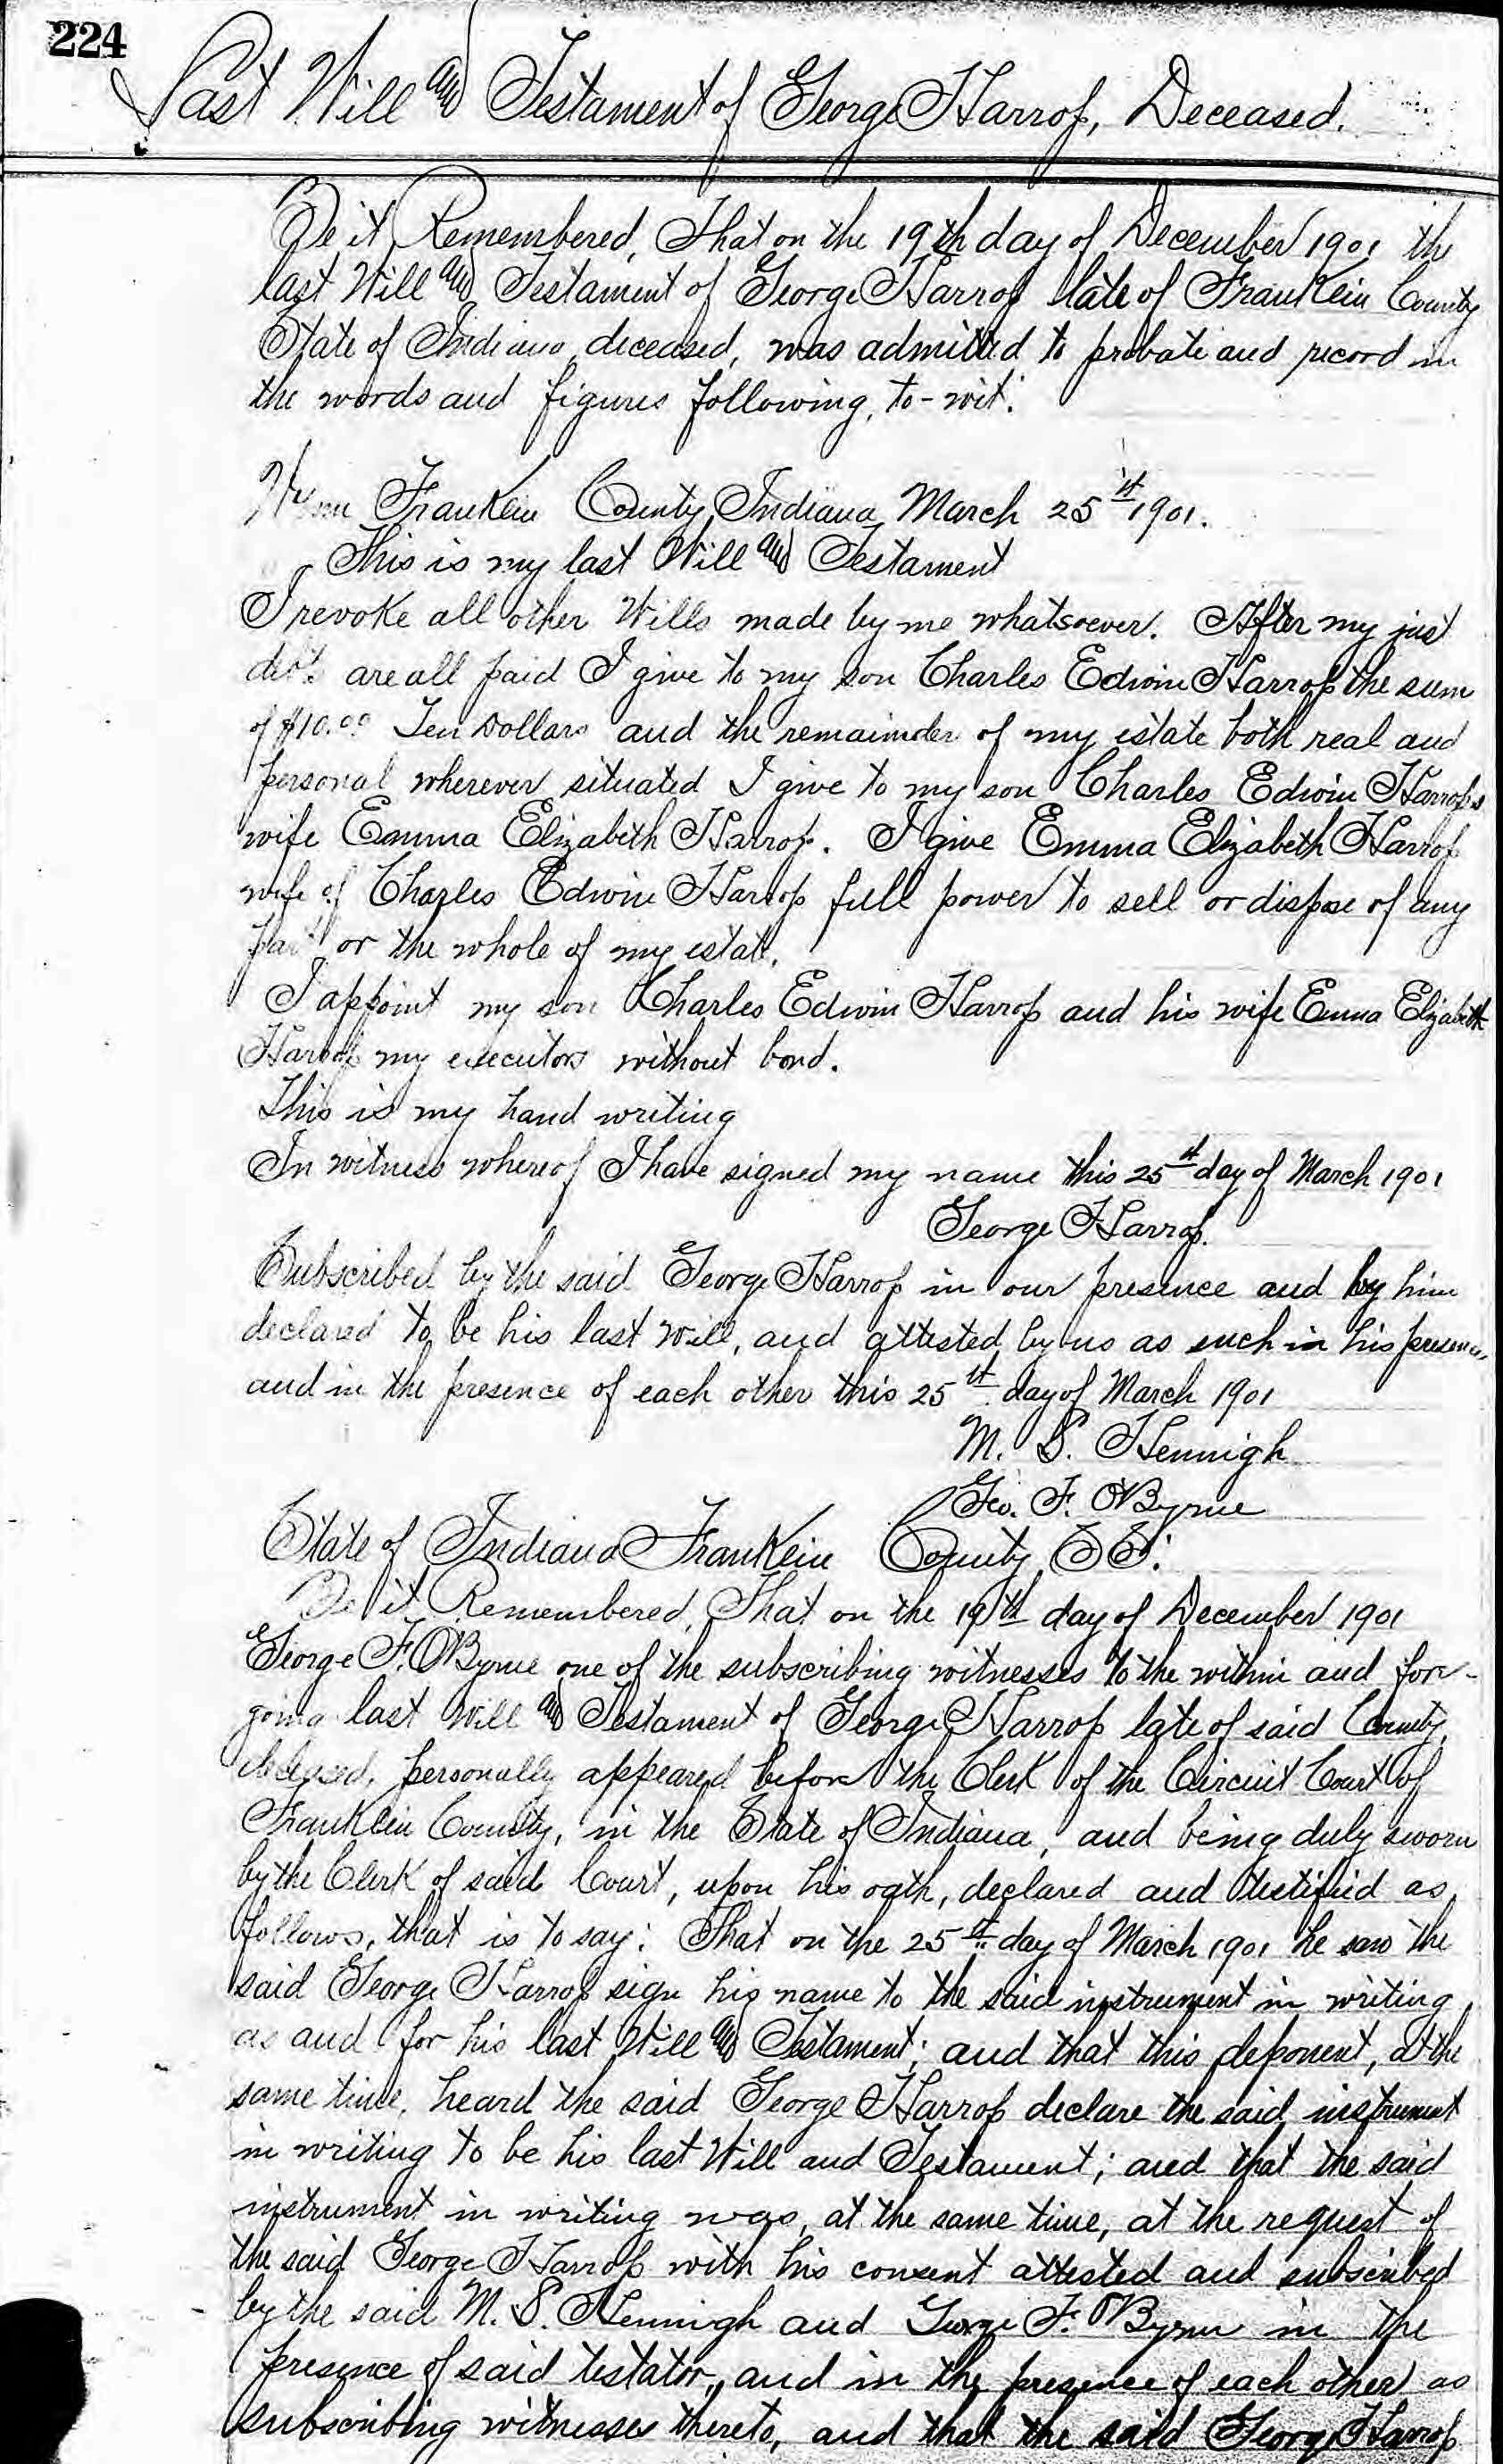 224
Last Will and Testament of George Harrop, Deceased.
Be it Remembered, That on the 19th day of December 1901 the
last Will and Testament of George Harrop late of Franklin County
State of Indiana, deceased, was admitted to probate and record in
the words and figures following, to-wit:
Franklin County, Indiana, March 25th 1901.
This is my last Will and Testament
I revoke all other Wills made by me whatsoever. After my just
debts are all paid I give to my son Charles Edwin Harrop the sum
of $10.00 Ten Dollars and the remainder of my estate both real and
personal wherever situated I give to my son Charles Edwin Harrops
wife Emma Elizabeth Harrop. I give Emma Elizabeth Harrop
wife of Charles Edwin Harrop full power to sell or dispose of any
part or the whole of my estate.
I appoint my son Charles Edwin Harrop and his wife Emma Elizabeth
Harrop my executors without bond.
This is my hand writing
In witness whereof I have signed my name this 25th day of March 1901
George Harrop.
Subscribed by the said George Harrop in our presence and by him
declared to be his last will, and attested by us as such in his presence,
and in the presence of each other this 25th day of March 1901
M. S. Hennigh
Geo. F. O'Byrne
State of Indiana Franklin County, SS:
Be it Remembered, That on the 19th day of December 1901
George F. O'Byrne one of the subscribing witnesses to the within and fore-
going last Will and Testament of George Harrop late of said County,
deceased, personally appeared before the Clerk of the Circuit Court of
Franklin County, in the State of Indiana, and being duly sworn
by the Clerk of said Court, upon his oath, declared and testified as
follows, that is to say: That on the 25th day of March 1901 he saw the
said George Harrop sign his name to the said instrument in writing
as and for his last Will and Testament; and that this deponent, at the
same time, heard the said George Harrop declare the said instrument
in writing to be his last Will and Testament; and that the said
instrument in writing was, at the same time, at the request of
the said George Harrop with his consent attested and subscribed
by the said M. S. Hennigh and George F. O'Byrne in the
presence of said testator, and in the presence of each other as
subscribing witnesses thereto, and that the said George Harrop